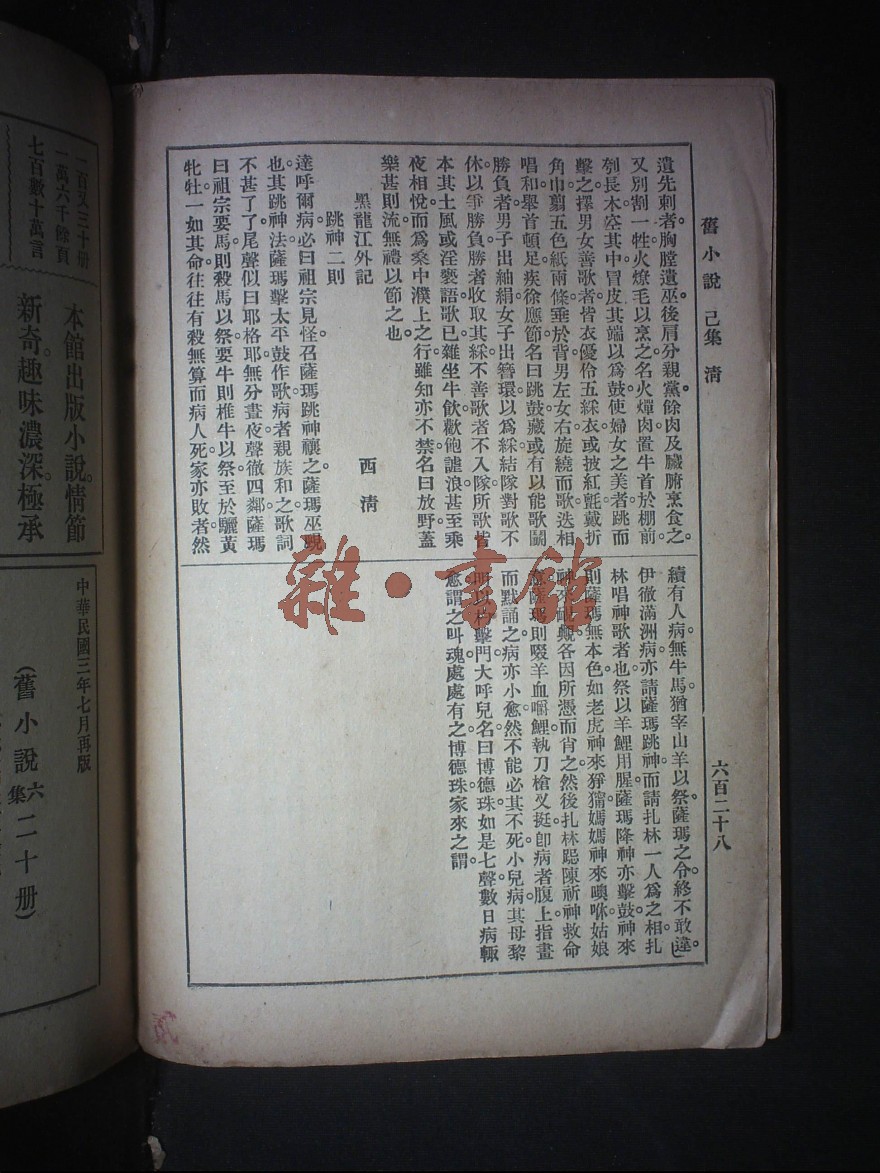 舊小說 己集 清
六百二十八
遺先刺者胸膛遺巫後肩分親黨餘肉及臟腑烹食之。
又別割一牲火燎毛以烹之名火燀肉置牛首於棚前。
刳長木空其中冒皮其端以爲鼓使婦女之美者跳而
擊之擇男女善歌者皆衣優伶五綵衣或披紅氈戴折
角巾翦五色紙兩條垂於背男左女右旋繞而歌迭相
唱和舉首頓足疾徐應節名曰跳鼓藏或有以能歌鬬
勝負者男子出紬絹女子出簪環以爲綵結隊對歌不
休以爭勝負勝者收取其綵不善歌者不入隊所歌皆
本其土風或淫褻語歌已雜坐牛飲歡飽謔浪甚至乘
夜相悅而爲桑中濮上之行雖知亦不禁名曰放野蓋
樂甚則流無禮以節之也。
黑龍江外記 西清
跳神二則
達呼爾病必曰祖宗見怪召薩瑪跳神禳之薩瑪巫覡
也其跳神法薩瑪擊太平鼓作歌病者親族和之歌詞
不甚了了尾聲似曰耶格耶無分晝夜聲徹四鄰薩瑪
曰祖宗要馬則殺馬以祭要牛則椎牛以祭至於驪黃
牝牡一如其命往往有殺無算而病人死家亦敗者然
續有人病無牛馬猶宰山羊以祭薩瑪之令終不敢違。
伊徹滿洲病亦請薩瑪跳神而請扎林一人爲之相扎
林唱神歌者也祭以羊鯉用腥薩瑪降神亦擊鼓神來
則薩瑪無本色如老虎神來猙獰媽媽神來噢咻姑娘
神來靦覥各因所憑而肖之然後扎林跽陳祈神救命
意薩瑪則啜羊血嚼鯉執刀槍叉挺卽病者腹上指畫
而默誦之病亦小愈然不能必其不死小兒病其母黎
明以杓擊門大呼兒名曰博德珠如是七聲數日病輒
愈謂之叫魂處處有之博德珠家來之謂。
雜·書館
一百又三十册
一萬六千餘頁
七百數十萬言
本館出版小說。情節
新奇。趣味濃深。極承
中華民國三年七月再版
（舊小說六集二十册）